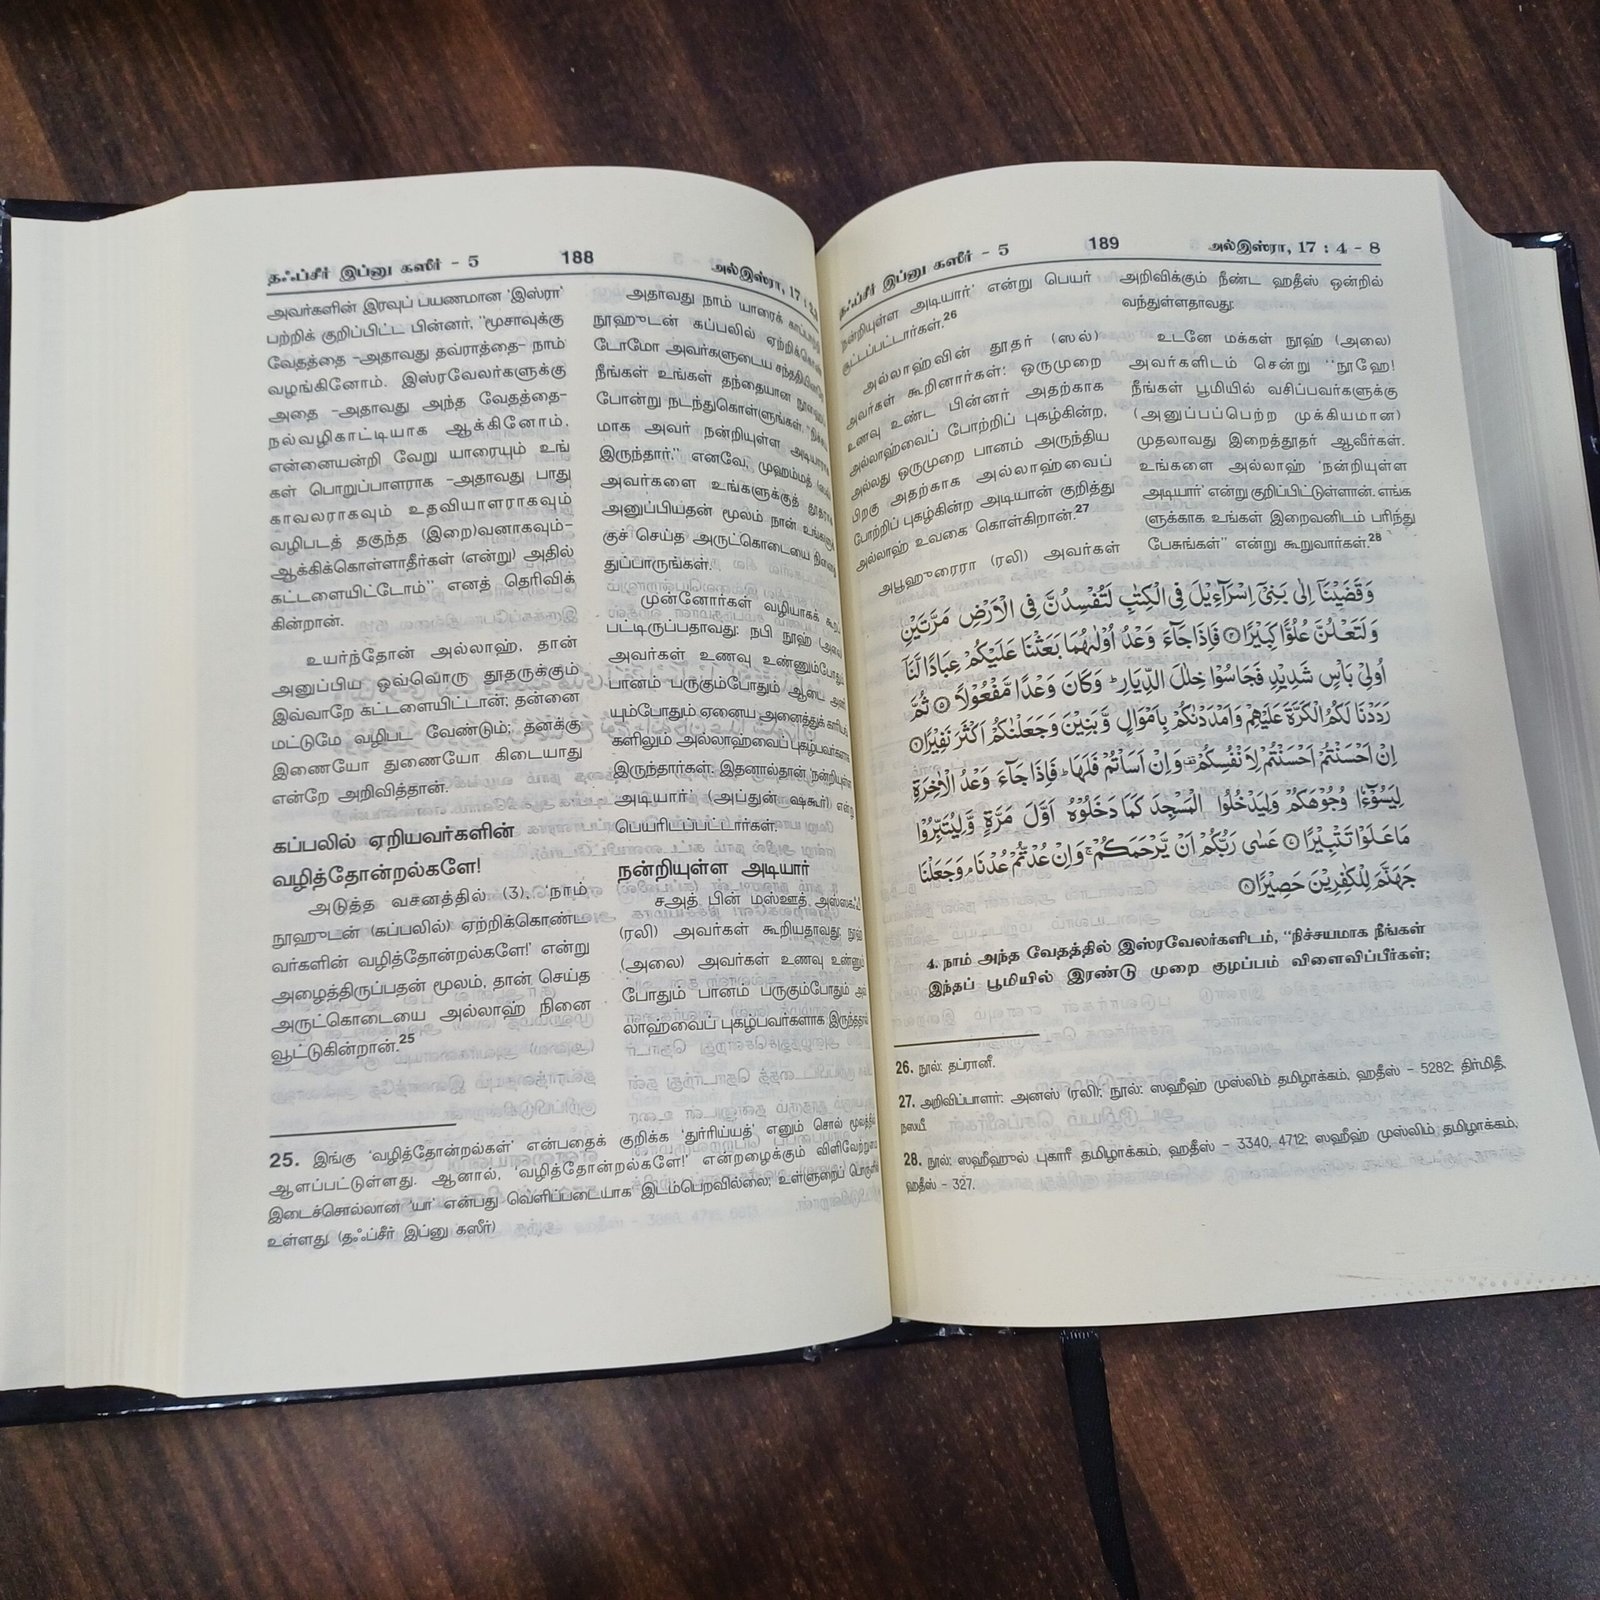 தஃப்சீர் இப்னு கஸீர் - 5 188 அல்இஸ்ரா, 17 :
அவர்களின் இரவுப் பயணமான 'இஸ்ரா'
பற்றிக் குறிப்பிட்ட பின்னர், "மூசாவுக்கு
வேதத்தை –அதாவது தவ்ராத்தை– நாம்
வழங்கினோம். இஸ்ரவேலர்களுக்கு
அதை –அதாவது அந்த வேதத்தை–
நல்வழிகாட்டியாக ஆக்கினோம்.
என்னையன்றி வேறு யாரையும் உங்
கள் பொறுப்பாளராக –அதாவது பாது
காவலராகவும் உதவியாளராகவும்
வழிபடத் தகுந்த (இறை)வனாகவும்–
ஆக்கிக்கொள்ளாதீர்கள் (என்று) அதில்
கட்டளையிட்டோம்" எனத் தெரிவிக்
கின்றான்.
உயர்ந்தோன் அல்லாஹ், தான்
அனுப்பிய ஒவ்வொரு தூதருக்கும்
இவ்வாறே கட்டளையிட்டான்; தன்னை
மட்டுமே வழிபட வேண்டும்; தனக்கு
இணையோ துணையோ கிடையாது
என்றே அறிவித்தான்.
கப்பலில் ஏறியவர்களின்
வழித்தோன்றல்களே!
அடுத்த வசனத்தில் (3), 'நாம்
நூஹுடன் (கப்பலில்) ஏற்றிக்கொண்ட
வர்களின் வழித்தோன்றல்களே!' என்று
அழைத்திருப்பதன் மூலம், தான் செய்த
அருட்கொடையை அல்லாஹ் நினை
வூட்டுகின்றான்.25
அதாவது நாம் யாரைக் காப்பாற்றி
நூஹுடன் கப்பலில் ஏற்றிக்கொண்
டோமோ அவர்களுடைய சந்ததியினரே!
நீங்கள் உங்கள் தந்தையான நூஹைப்
போன்று நடந்துகொள்ளுங்கள்.
மாக அவர் நன்றியுள்ள அடியாராக
இருந்தார்." எனவே, முஹம்மத் (ஸல்)
அவர்களை உங்களுக்குத் தூதராக
அனுப்பியதன் மூலம் நான் உங்களுக்
குச் செய்த அருட்கொடையை நினைத்
துப்பாருங்கள்.
முன்னோர்கள் வழியாகக் கூறப்
பட்டிருப்பதாவது: நபி நூஹ் (அலை)
அவர்கள் உணவு உண்ணும்போதும்
பானம் பருகும்போதும் ஆடை அணி
யும்போதும் ஏனைய அனைத்துக் காரியங்
களிலும் அல்லாஹ்வைப் புகழ்பவர்களாக
இருந்தார்கள். இதனால்தான் 'நன்றியுள்ள
அடியார்' (அப்துன் ஷகூர்) என்று
பெயரிடப்பட்டார்கள்.
நன்றியுள்ள அடியார்
சஅத் பின் மஸ்ஊத் அஸ்ஸகஃபீ
(ரலி) அவர்கள் கூறியதாவது: நூஹ்
(அலை) அவர்கள் உணவு உண்ணும்
போதும் பானம் பருகும்போதும் அல்
லாஹ்வைப் புகழ்பவர்களாக இருந்ததால்
25. இங்கு 'வழித்தோன்றல்கள்' என்பதைக் குறிக்க 'துர்ரிய்யத்' எனும் சொல் மூலத்தில்
ஆளப்பட்டுள்ளது. ஆனால், 'வழித்தோன்றல்களே!' என்றழைக்கும் விளிவேற்றுமை
இடைச்சொல்லான 'யா' என்பது வெளிப்படையாக இடம்பெறவில்லை; உள்ளுறைப் பொருளில்
உள்ளது. (தஃப்சீர் இப்னு கஸீர்)
தஃப்சீர் இப்னு கஸீர் - 5 189 அல்இஸ்ரா, 17 : 4 - 8
நன்றியுள்ள அடியார்' என்று பெயர்
சூட்டப்பட்டார்கள்.26
அல்லாஹ்வின் தூதர் (ஸல்)
அவர்கள் கூறினார்கள்: ஒருமுறை
உணவு உண்ட பின்னர் அதற்காக
அல்லாஹ்வைப் போற்றிப் புகழ்கின்ற,
அல்லது ஒருமுறை பானம் அருந்திய
பிறகு அதற்காக அல்லாஹ்வைப்
போற்றிப் புகழ்கின்ற அடியான் குறித்து
அல்லாஹ் உவகை கொள்கிறான்.27
அபூஹுரைரா (ரலி) அவர்கள்
அறிவிக்கும் நீண்ட ஹதீஸ் ஒன்றில்
வந்துள்ளதாவது:
உடனே மக்கள் நூஹ் (அலை)
அவர்களிடம் சென்று "நூஹே!
நீங்கள் பூமியில் வசிப்பவர்களுக்கு
(அனுப்பப்பெற்ற முக்கியமான)
முதலாவது இறைத்தூதர் ஆவீர்கள்.
உங்களை அல்லாஹ் 'நன்றியுள்ள
அடியார்' என்று குறிப்பிட்டுள்ளான். எங்க
ளுக்காக உங்கள் இறைவனிடம் பரிந்து
பேசுங்கள்" என்று கூறுவார்கள்.28
وَقَضَيْنَآ اِلٰى بَنِيْٓ اِسْرَآءِيْلَ فِي الْكِتٰبِ لَتُفْسِدُنَّ فِي الْاَرْضِ مَرَّتَيْنِ
وَلَتَعْلُنَّ عُلُوًّا كَبِيْرًا ۝٤ فَاِذَا جَآءَ وَعْدُ اُوْلٰىهُمَا بَعَثْنَا عَلَيْكُمْ عِبَادًا لَّنَآ
اُولِيْ بَاْسٍ شَدِيْدٍ فَجَاسُوْا خِلٰلَ الدِّيَارِ ؕ وَكَانَ وَعْدًا مَّفْعُوْلًا ۝٥ ثُمَّ
رَدَدْنَا لَكُمُ الْكَرَّةَ عَلَيْهِمْ وَاَمْدَدْنٰكُمْ بِاَمْوَالٍ وَّبَنِيْنَ وَجَعَلْنٰكُمْ اَكْثَرَ نَفِيْرًا ۝٦
اِنْ اَحْسَنْتُمْ اَحْسَنْتُمْ لِاَنْفُسِكُمْ وَاِنْ اَسَاْتُمْ فَلَهَا ؕ فَاِذَا جَآءَ وَعْدُ الْاٰخِرَةِ
لِيَسُوْٓءٗا وُجُوْهَكُمْ وَلِيَدْخُلُوا الْمَسْجِدَ كَمَا دَخَلُوْهُ اَوَّلَ مَرَّةٍ وَّلِيُتَبِّرُوْا
مَا عَلَوْا تَتْبِيْرًا ۝٧ عَسٰى رَبُّكُمْ اَنْ يَّرْحَمَكُمْ ۚ وَاِنْ عُدْتُّمْ عُدْنَا ۘ وَجَعَلْنَا
جَهَنَّمَ لِلْكٰفِرِيْنَ حَصِيْرًا ۝٨
4. நாம் அந்த வேதத்தில் இஸ்ரவேலர்களிடம், "நிச்சயமாக நீங்கள்
இந்தப் பூமியில் இரண்டு முறை குழப்பம் விளைவிப்பீர்கள்;
26. நூல்: தப்ரானீ.
27. அறிவிப்பாளர்: அனஸ் (ரலி); நூல்: ஸஹீஹ் முஸ்லிம் தமிழாக்கம், ஹதீஸ் - 5282; திர்மிதீ,
நஸயீ.
28. நூல்: ஸஹீஹுல் புகாரீ தமிழாக்கம், ஹதீஸ் - 3340, 4712; ஸஹீஹ் முஸ்லிம் தமிழாக்கம்,
ஹதீஸ் - 327.